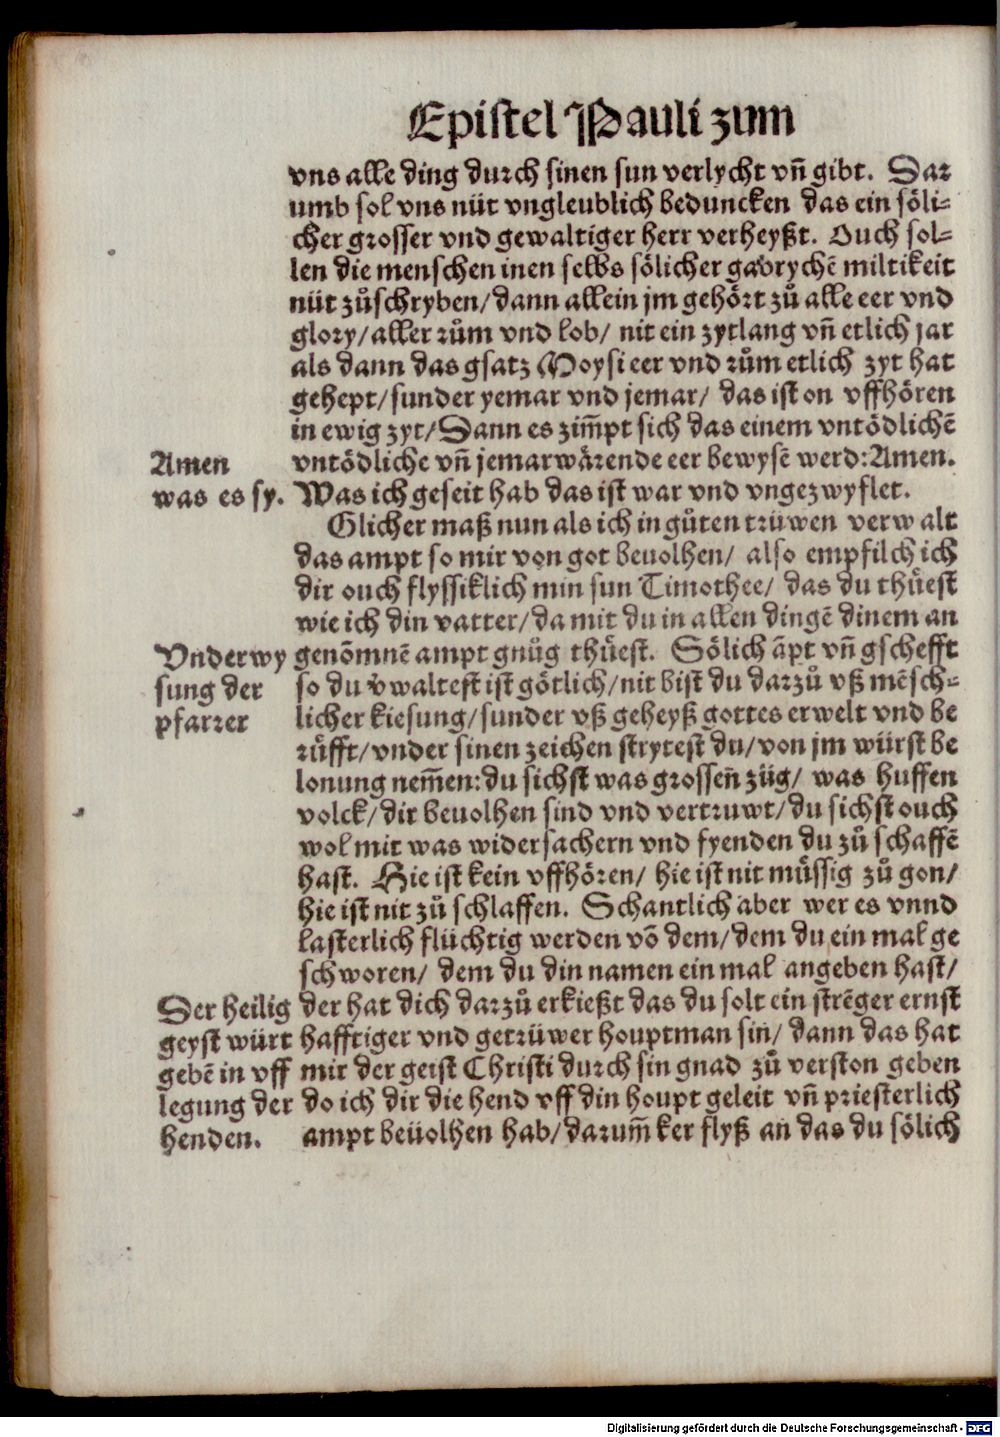 Epistel Pauli zum
vns alle ding durch sinen sun verlycht vñ gibt. Dar
umb sol vns nüt vngleublich beduncken das ein söli-
cher grosser vnd gewaltiger herr verheyßt. Ouch sol-
len die menschen inen selbs sölicher gabrychẽ miltikeit
nüt zůschryben/ dann allein jm gehört zů alle eer vnd
glory/ aller rům vnd lob/ nit ein zytlang vñ etlich jar
als dann das gsatz Moysi eer vnd rům etlich zyt hat
gehept/ sunder yemar vnd jemar/ das ist on vffhören
in ewig zyt/ Dann es zim̃pt sich das einem vntödlichẽ
Amen
was es sy.
vntödliche vñ jemarwärende eer bewysẽ werd: Amen.
Was ich geseit hab das ist war vnd vngezwyflet.
Glicher maß nun als ich in gůten trüwen verwalt
das ampt so mir von got beuolhen/ also empfilch ich
dir ouch flyssiklich min sun Timothee/ das du thůest
wie ich din vatter/ da mit du in allen dingẽ dinem an
Vnderwy
sung der
pfarrer
genõmnẽ ampt gnůg thůest. Sölich ãpt vñ gschefft
so du v̾waltest ist götlich/ nit bist du darzů vß mẽsch-
licher kiesung/ sunder vß geheyß gottes erwelt vnd be
růfft/ vnder sinen zeichen strytest du/ von jm würst be
lonung nem̃en: du sichst was grosseñ züg/ was huffen
volck/ dir beuolhen sind vnd vertruwt/ du sichst ouch
wol mit was widersachern vnd fyenden du zů schaffẽ
hast. Hie ist kein vffhören/ hie ist nit müssig zů gon/
hie ist nit zů schlaffen. Schantlich aber wer es vnnd
lasterlich flüchtig werden võ dem/ dem du ein mal ge
schworen/ dem du din namen ein mal angeben hast/
Der heilig
geyst würt
gebẽ in vff
legung der
henden.
der hat dich darzů erkießt das du solt ein strẽger ernst
hafftiger vnd getrüwer houptman sin/ dann das hat
mir der geist Christi durch sin gnad zů verston geben
do ich dir die hend vff din houpt geleit vñ priesterlich
ampt beüolhen hab/ darum̃ ker flyß an das du sölich
Digitalisierung gefördert durch die Deutsche Forschungsgemeinschaft - DFG